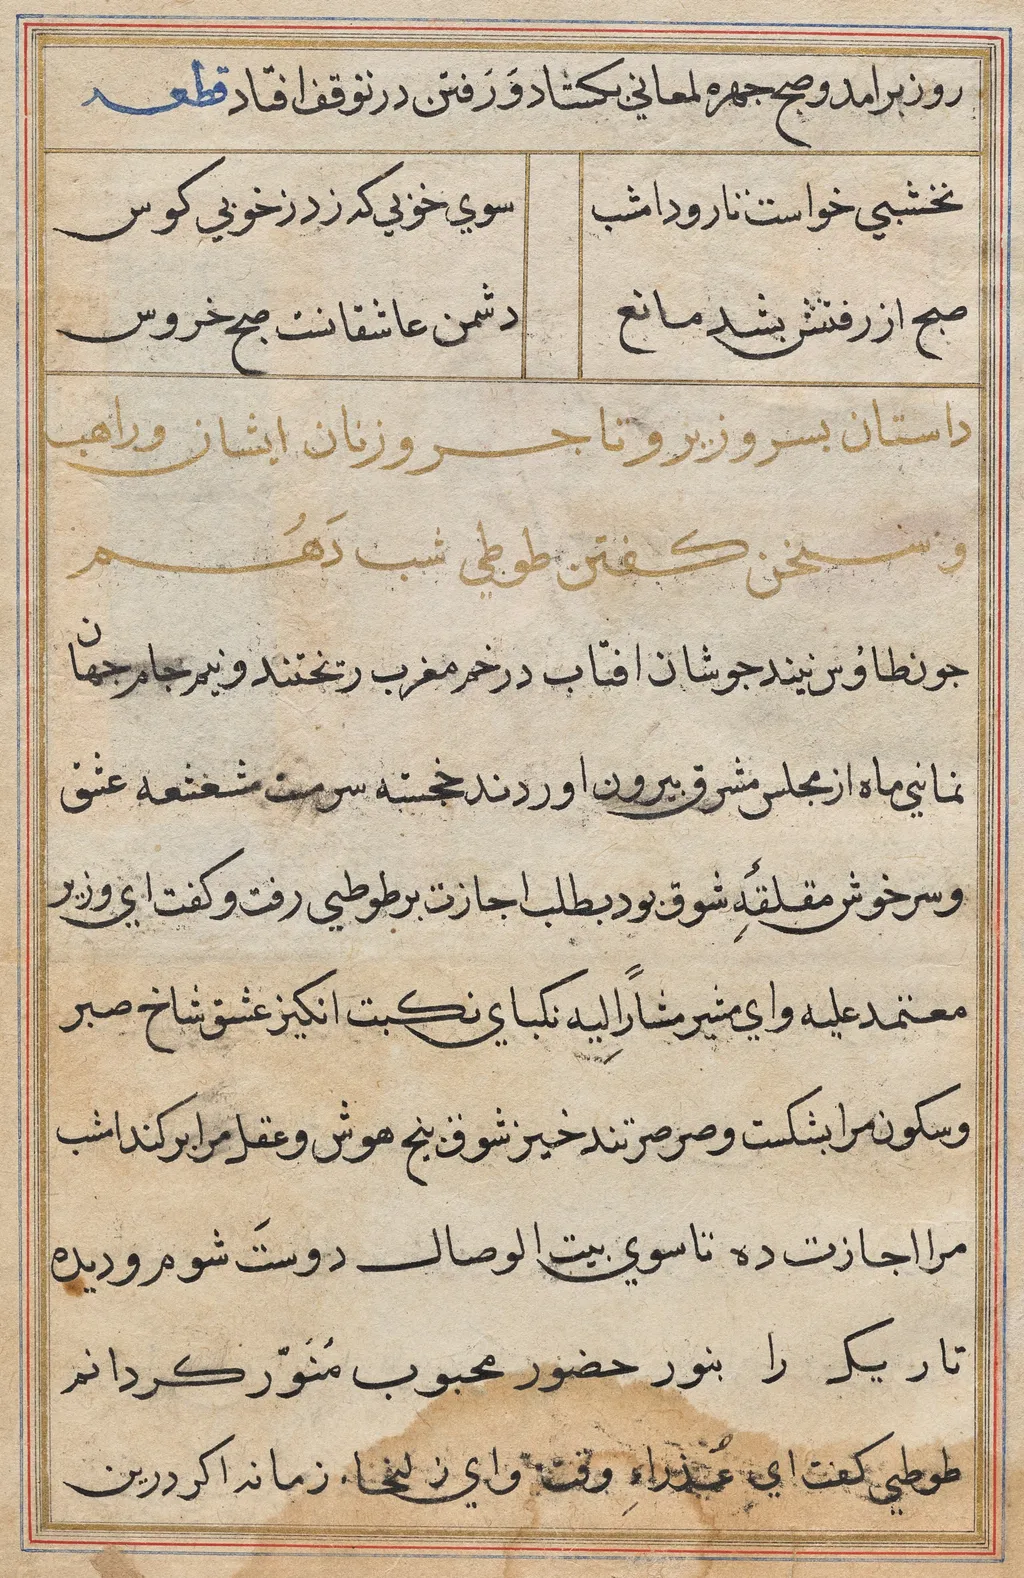 روز برامد و صبح جهره لمعاني بكشاد وَرَفتن در توقف افتاد قطعه
نخشبي خواست تا رود امشب سوي خوبي كه زد ز خوبي كوس
صبح از رفتنش بشد مانع دشمن عاشقانست صبح خروس
داستان بسر وزير و تاجر و زنان ايشان و راهب
و سخن كفتن طوطي شب دَهُم
جون طاؤس جوشان افتاب در خم مغرب ريختند و نيم جام جهان
نماني ماه از مجلس مشرق بيرون اوردند خجسته سرمست مشغشعه عشق
و سرخوش مقلقهٔ شوق بود بطلب اجازت بر طوطي رفت و كفت اي وزير
معتمد عليه و اي مشير مشارًا اِليه نكباي نكبت انكيز عشق شاخ صبر
و سكون مرا بشكست و صرصر تند خيز شوق بيخ هوش و عقل مرا بركند امشب
مرا اجازت ده تا سوي بيت الوصال دوستَ شوم و ديده
تاريك را بنور حضور محبوب مُنَوّر كردانم
طوطي كفت اي عُذراءِ وقت و اي زليخاء زمانه اكر درين